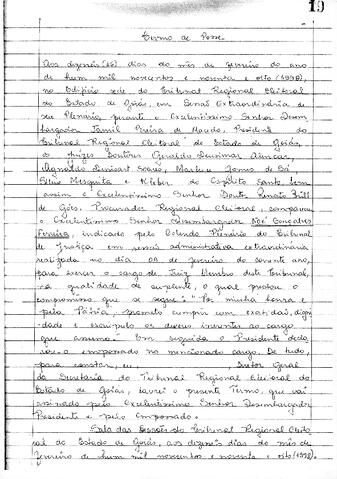 19
Termo de Posse
Aos dezesseis (16) dias do mês de fevereiro do ano
de hum mil novecentos e noventa e oito (1998),
no Edifício sede do Tribunal Regional Eleitoral
do Estado de Goiás, em Sessão Extraordinária de
seu Plenário, perante o Excelentíssimo Senhor Desem
bargador Jamil Pereira de Macedo, Presidente do
Tribunal Regional Eleitoral do Estado de Goiás,
os Juízes Doutores Geraldo Deusimar Alencar,
Agnaldo Denisart Soares, Marlene Gomes de Sá
Silva Mesquita e Kleber do Espírito Santo, bem
assim o Excelentíssimo Senhor Doutor Renato Brill
de Góes, Procurador Regional Eleitoral, compareceu
o Excelentíssimo Senhor Desembargador Noé Gonçalves
Ferreira, indicado pelo Colendo Plenário do Tribunal
de Justiça em sessão administrativa extraordinária
realizada no dia de janeiro do corrente ano,
para exercer o cargo de Juiz Membro deste Tribunal,
na qualidade de suplente, o qual prestou o
compromisso que se segue: "Por minha honra e
pela Pátria, prometo cumprir com exatidão, digni
dade e escrúpulo os deveres inerentes ao cargo
que assumo". Em seguida o Presidente decla
rou-o empossado no mencionado cargo. De tudo,
para constar, ... Diretor Geral
da Secretaria do Tribunal Regional Eleitoral do
Estado de Goiás, lavrei o presente Termo, que vai
assinado pelo Excelentíssimo Senhor Desembargador
Presidente e pelo Empossado.
Sala das Sessões do Tribunal Regional Eleito
ral do Estado de Goiás, aos dezesseis dias do mês de
fevereiro de hum mil novecentos e noventa e oito (1998).